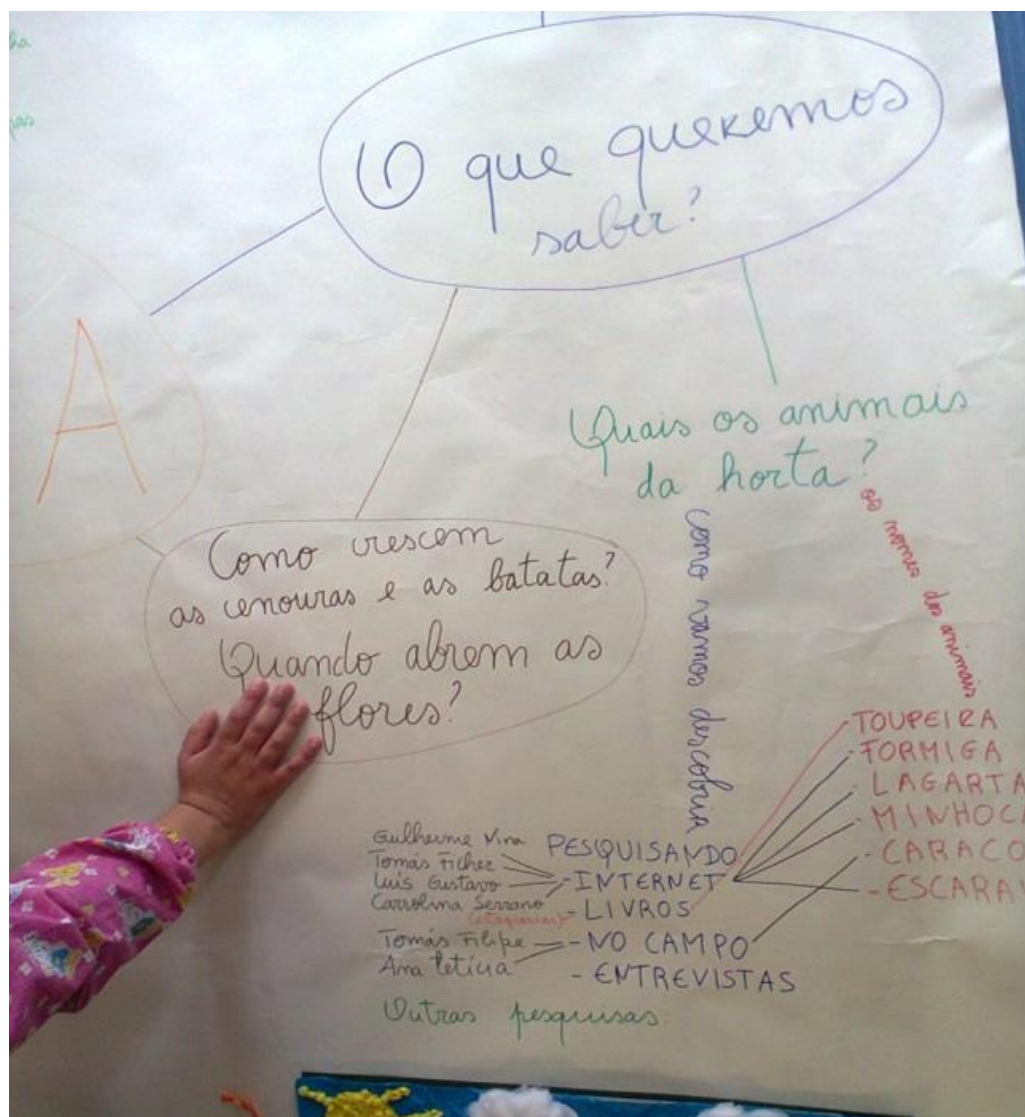 O que queremos
saber?
A
Quais os animais
da horta?
Como crescem
as cenouras e as batatas?
Quando abrem as
flores?
como vamos descobrir
os nomes dos animais
TOUPEIRA
- FORMIGA
- LAGARTA
- MINHOCA
- CARACO
- ESCARA
Guilherme
Tomás
Luís Gustavo
Carrolina Serrano
(estagiárias)
Tomás Filipe
Ana Letícia
PESQUISANDO
- INTERNET
- LIVROS
- NO CAMPO
- ENTREVISTAS
Outras pesquisas